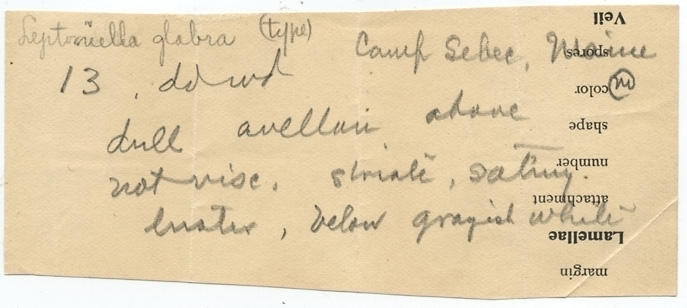 Leptoniella glabra (type) Camp Sebec, Maine
13, dd wd (M)
dull avellan above
not visc. striate, satiny
luster, below grayish white
Veil
spores
color
shape
number
attachment
Lamellae
margin